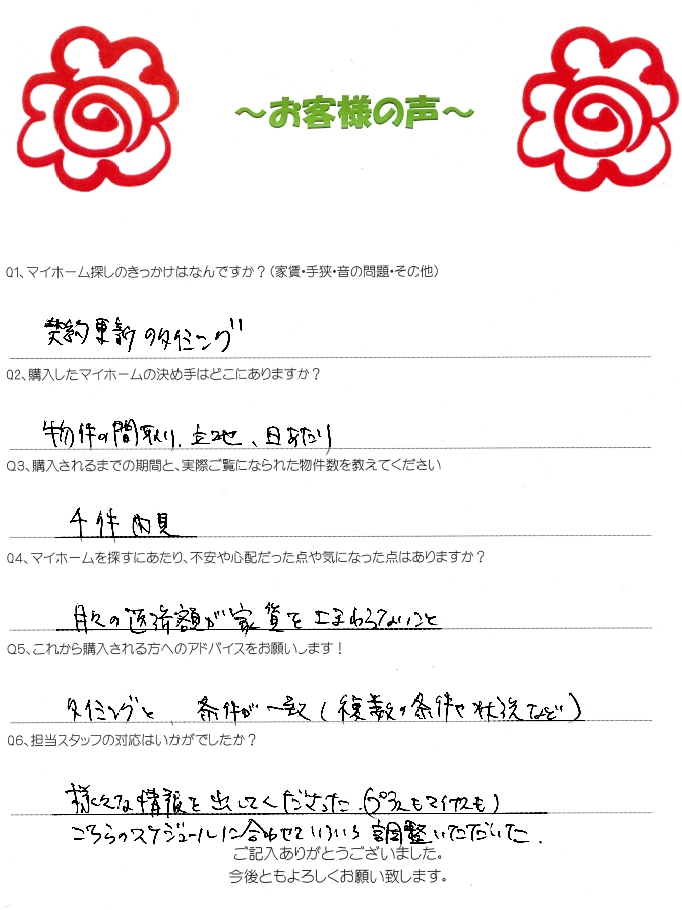 ～お客様の声～
Q1、マイホーム探しのきっかけはなんですか？(家賃・手狭・音の問題・その他)
契約更新のタイミング
Q2、購入したマイホームの決め手はどこにありますか？
物件の間取り、立地、日あたり
Q3、購入されるまでの期間と、実際ご覧になられた物件数を教えてください
4件内見
Q4、マイホームを探すにあたり、不安や心配だった点や気になった点はありますか？
月々の返済額が家賃を上まわらないこと
Q5、これから購入される方へのアドバイスをお願いします！
タイミングと、条件が一致(複数の条件や状況など)
Q6、担当スタッフの対応はいかがでしたか？
様々な情報を出してくださった。(プラスもマイナスも)
こちらのスケジュールに合わせていろいろ調整いただいた。
ご記入ありがとうございました。
今後ともよろしくお願い致します。